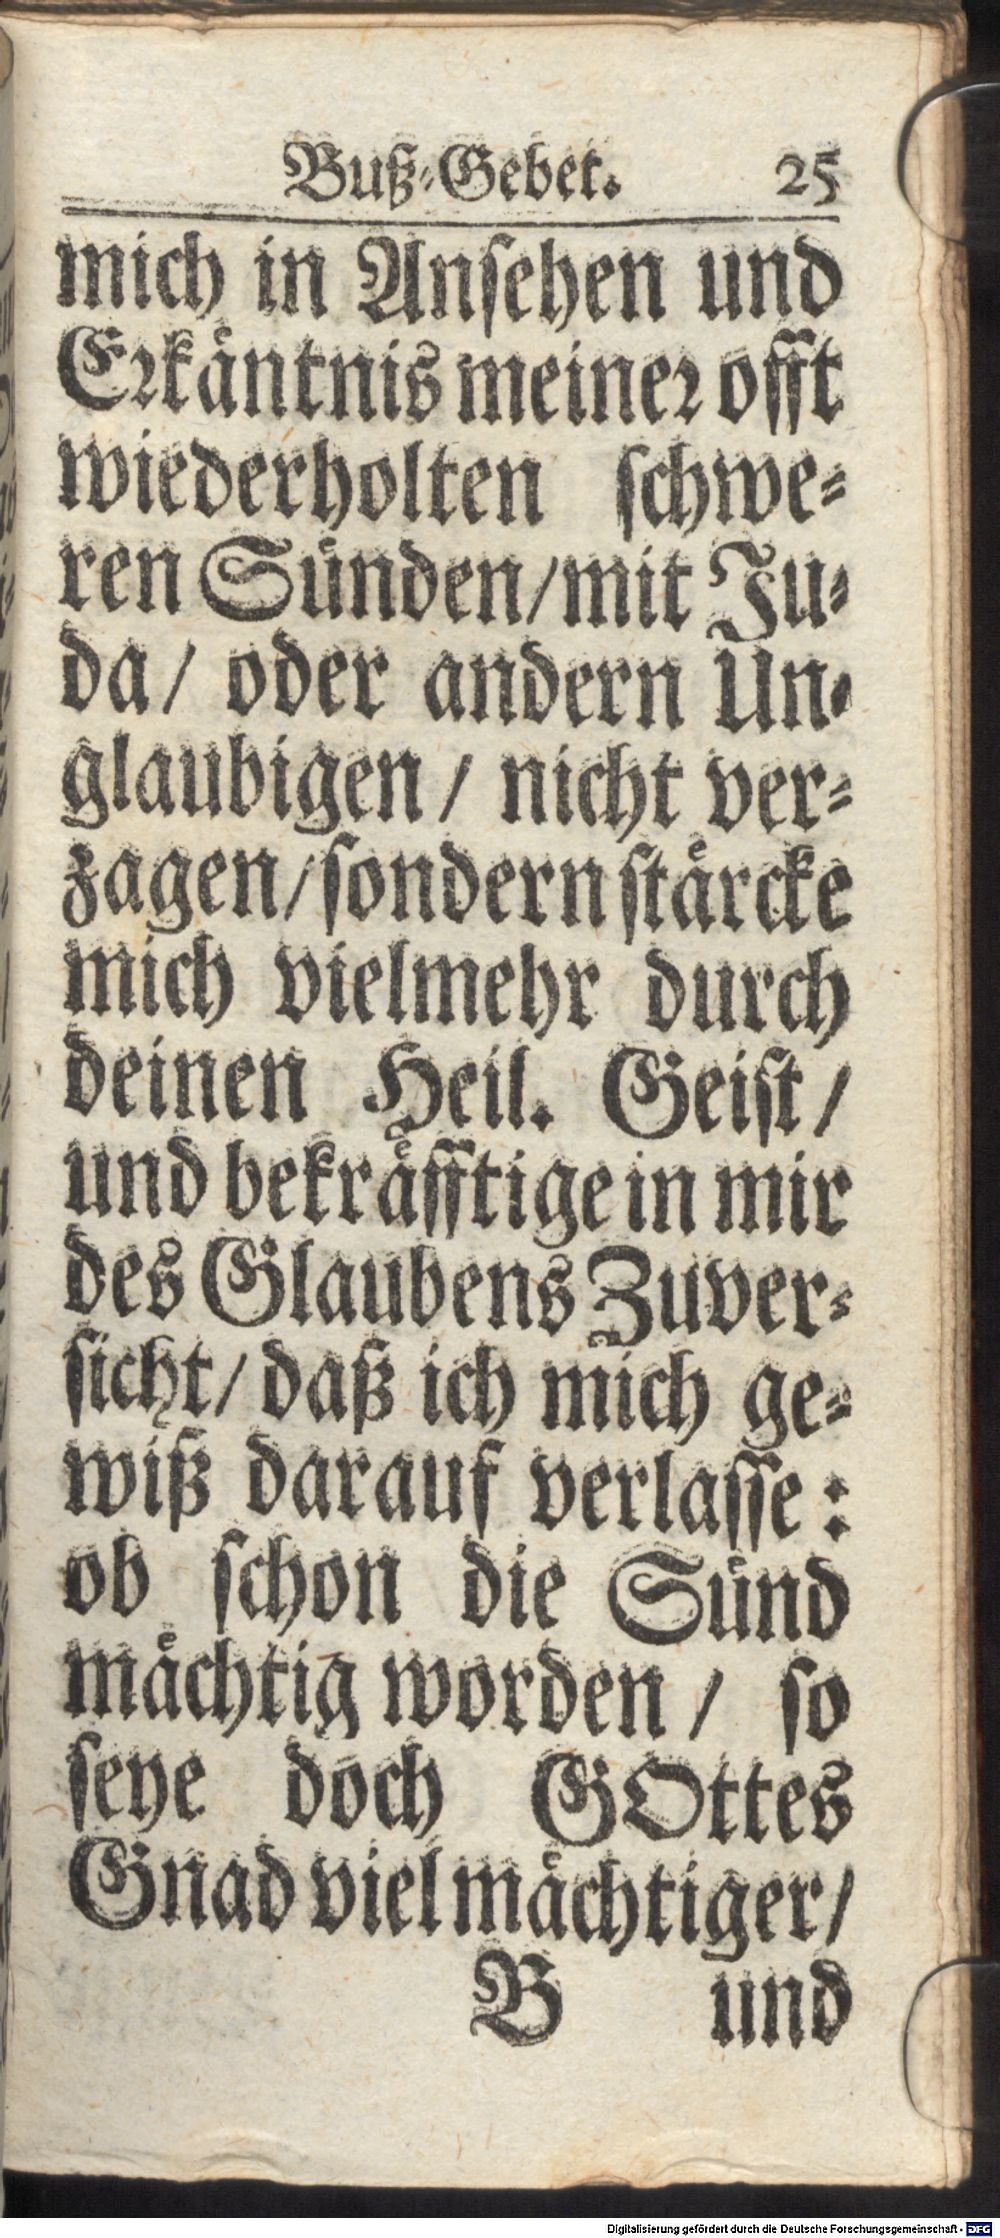 Buß-Gebet. 25
mich in Ansehen und
Erkäntnis meiner offt
wiederholten schwe-
ren Sünden/mit Ju-
da/ oder andern Un-
glaubigen/ nicht ver-
zagen/sondern stärcke
mich vielmehr durch
deinen Heil. Geist/
und bekräfftige in mir
des Glaubens Zuver-
sicht/ daß ich mich ge-
wiß darauf verlasse:
ob schon die Sünd
mächtig worden/ so
seye doch GOttes
Gnad viel mächtiger/
B und
Digitalisierung gefördert durch die Deutsche Forschungsgemeinschaft - DFG